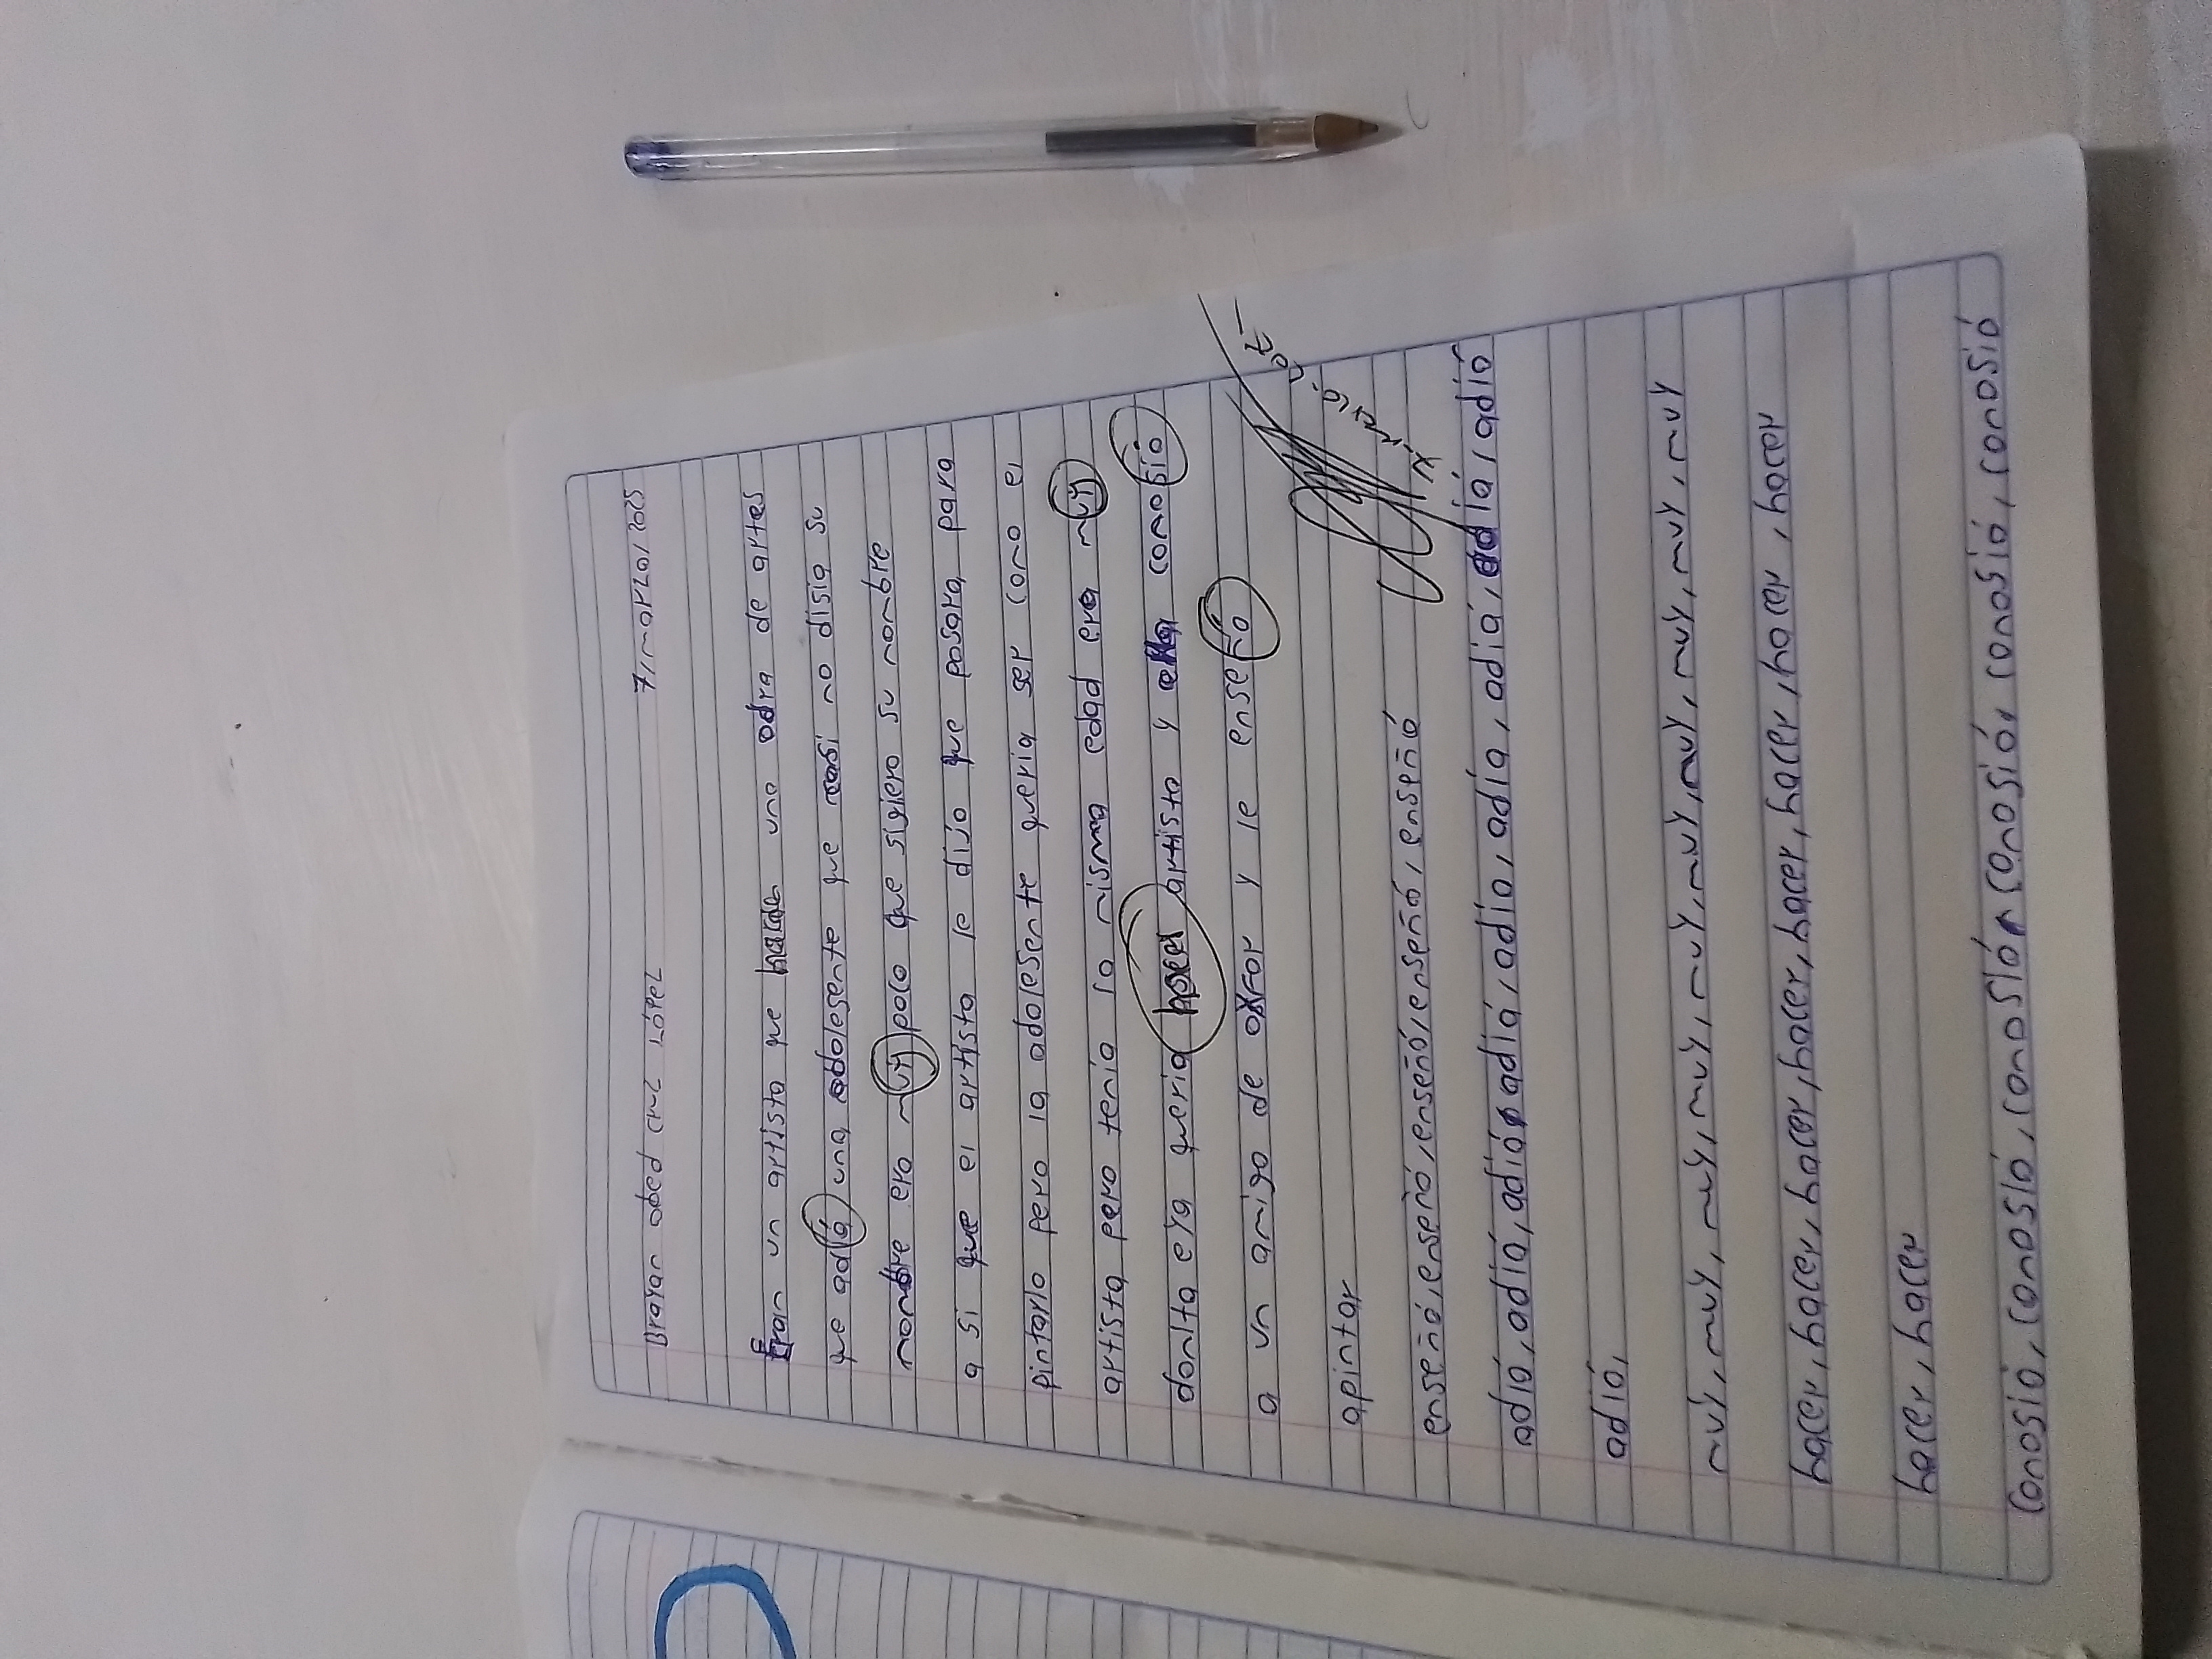 Brayan obed cruz López 7/marzo/2025
Eran un artista que una obra de artes
que adiá una adolesente que casi no disia su
nombre era muy poco que sigiero su nombre
a si que el artista le dijo que posara para
pintarlo pero la adolesente queria ser como el
artista pero tenia la misma edad era muy
donita eya queria hacer artista y ella conosió
a un amigo de or y le enseñó
apintar
enseñó, enseñó, enseñó, enseñó, enseñó, enseñó
adiá, adiá, adiá, adiá, adiá, adiá, adiá, adiá, adiá, adiá, adiá
adiá,
muy, muy, muy, muy, muy, muy, muy, muy, muy, muy, muy
hacer, hacer, hacer, hacer, hacer, hacer, hacer, hacer, hacer
hacer, hacer
conosió, conosió, conosió, conosió, conosió, conosió, conosió